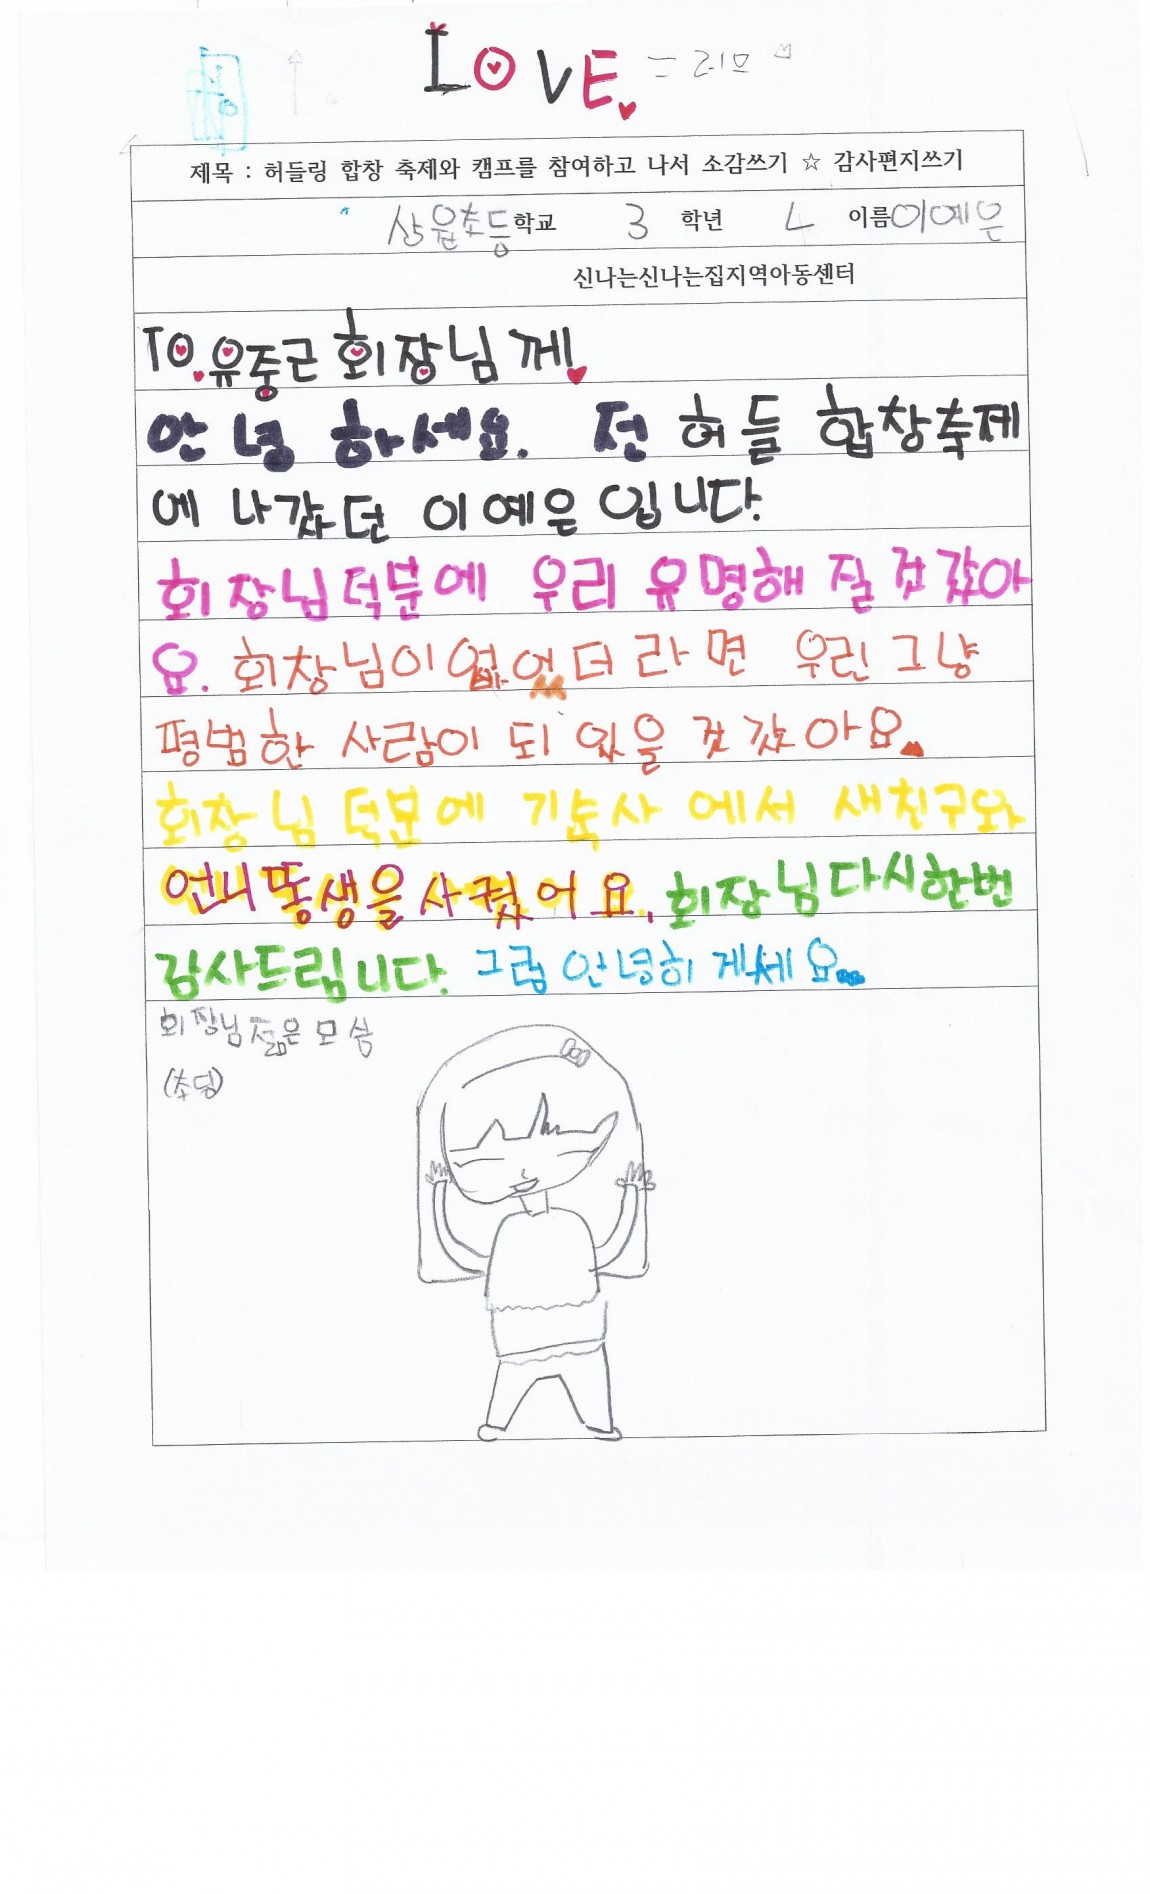 LOVE = 러브
제목 : 허들링 합창 축제와 캠프를 참여하고 나서 소감쓰기 ☆ 감사편지쓰기
초등학교 3 학년 이름 이예은
신나는신나는집지역아동센터
TO.유중근 회장님께
안녕하세요. 전 허들 합창축제
에 나갔던 이예은 입니다.
회장님덕분에 우리 유명해 질 것 갔아
요. 회창님이 없었더라면 우린 그냥
평범한 사람이 되 있을 것 갔아요.
회장님 덕분에 기숙사 에서 새친구와
언니 똥생을 사궜어요. 회장님다시한번
감사드립니다. 그럼 안녕히 게세요.
회장님 젊은 모습
(초딩)